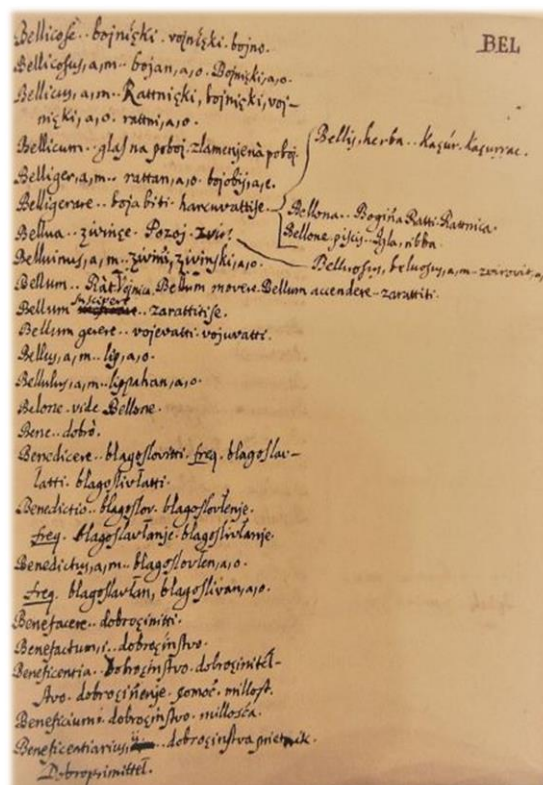 BEL
Bellicosè.. bojnięki. vojnięki. bojno.
Bellicosus,a,m.. bojan,a,o. Bojnięki,a,o.
Bellicus,a,m.. Rattnięki, bojnięki, voj-
nięki, a,o. rattni,a,o.
Bellicum.. glaſ na poboj. zlamenjenà poboj.
Belliger,a,m.. rattan,a,o. bojobij,a,e.
Belligerare.. boja biti. harcuvattiſe.
Bellua.. xivinçe. Pozoj.
Belluinus,a,m.. xivini, xivinſki,a,o.
Bellum.. Ràt. Vojnica. Bellum movere. Bellum accendere. zarattiti.
Bellum Suscipere.. zarattitiſe.
Bellum gerere.. vojevatti. vojuvatti.
Bellus,a,m.. lip,a,o.
Bellulus,a,m.. lippahan,a,o.
Belone. vide Bellone.
Bene.. dobrò.
Benedicere.. blagoſlovitti. freq. blagoſlav-
łatti. blagoſlivłatti.
Benedictio.. blagoſlov. blagoſlovłenje.
freq. blagoſlavłanje. blagoſlivłanje.
Benedictus,a,m.. blagoſlovłen,a,o.
freq. blagoſlavłan, blagoſlivan,a,o.
Benefacere.. dobroçinitti.
Benefactum,i.. dobroçinſtvo.
Beneficentia.. dobroçinſtvo. dobroçinitel-
ſtvo. dobroçinenje. pomoć. milloſt.
Beneficium. dobroçinſtvo. milloſća.
Beneficentiarius,.. dobroçinſtva prietnik.
Dobroprimitteł.
Bellis, herba.. Kaçúr. Kaçurrac.
Bellona.. Boginà Ratti. Rattnica.
Bellone, piscis. Igla, ribba.
Belluosus, beluosus,a,m..